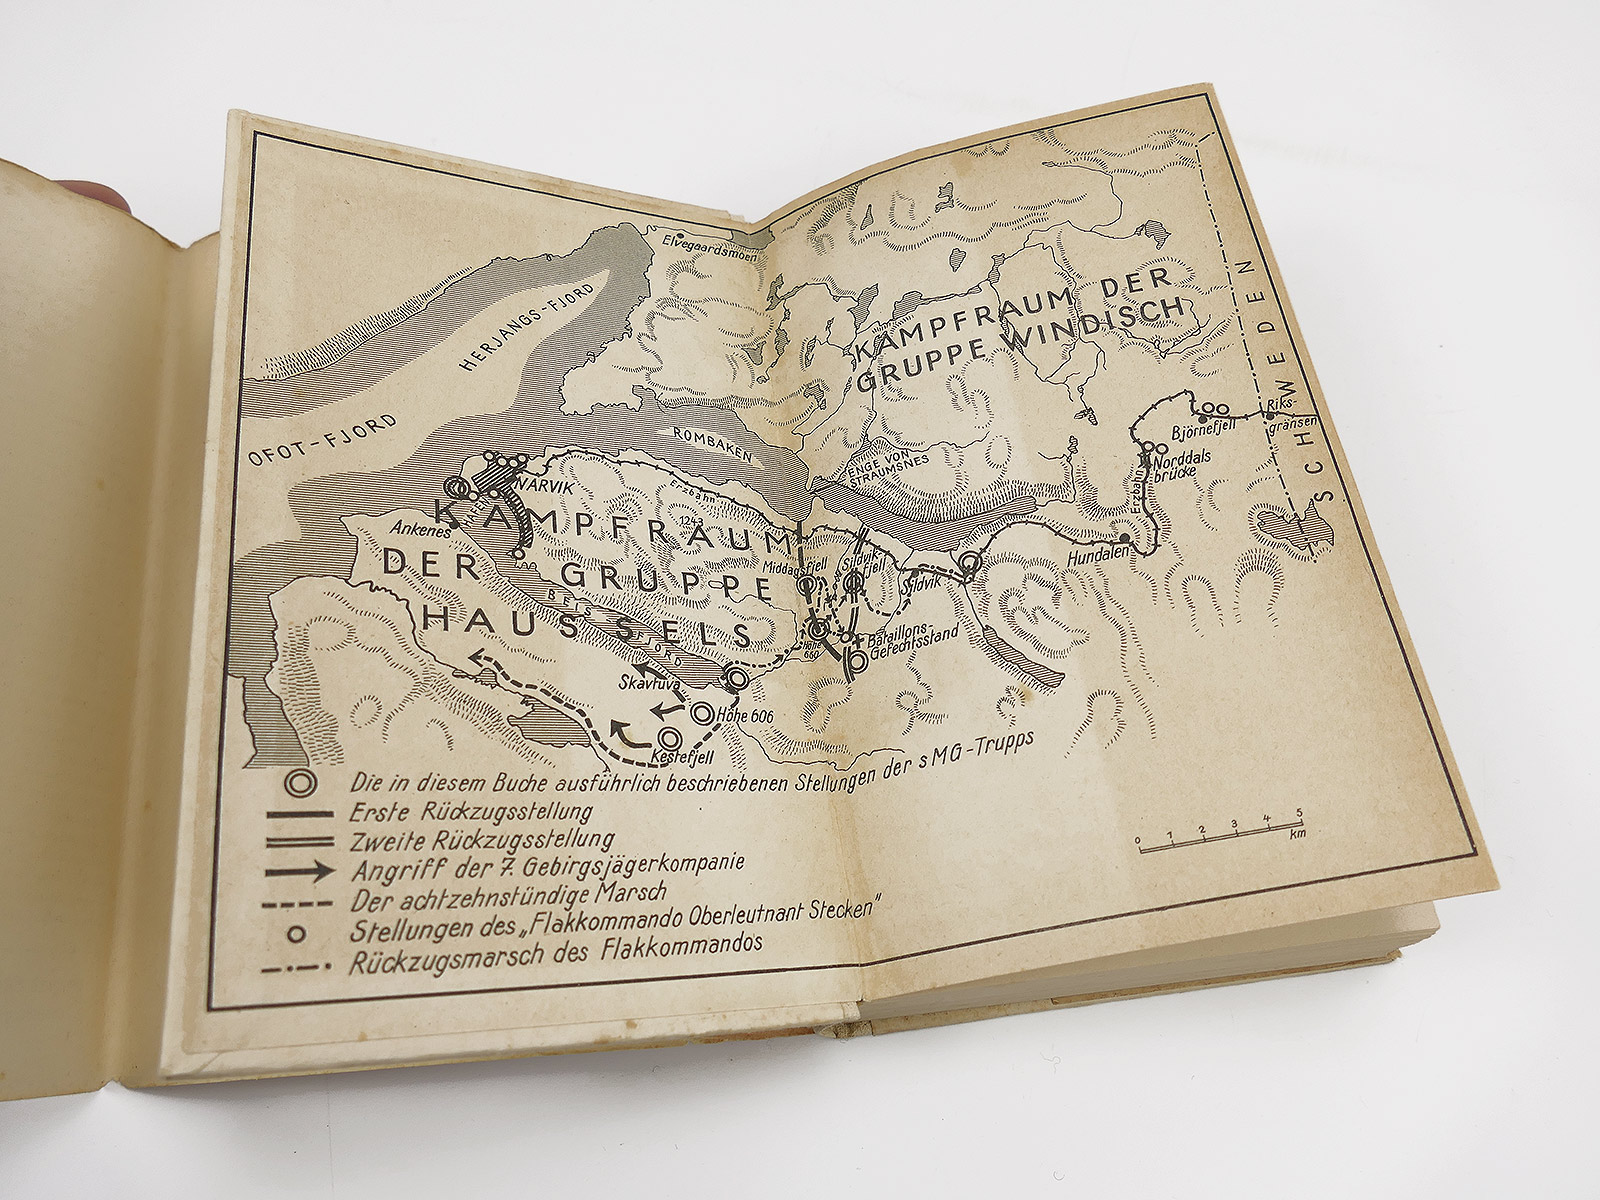 Elvegaardsmoen
HERJANGS-FJORD
OFOT-FJORD
KAMPFRAUM DER
GRUPPE WINDISCH
SCHWEDEN
Riks-
gränsen
Björnefjell
Norddals
brücke
Erzbahn
Hundalen
ROMBAKEN
ENGE VON
STRAUMSNES
Erzbahn
NARVIK
HAFEN
Ankenes
1243
KAMPFRAUM
DER GRUPPE
HAUSSELS
BEIS
FJORD
Middagsfjell
Sildvik
fjell
Sildvik
Höhe
660
Bataillons-
Gefechtsstand
Skavtuva
Höhe 606
Kestefjell
Die in diesem Buche ausführlich beschriebenen Stellungen der sMG-Trupps
Erste Rückzugsstellung
Zweite Rückzugsstellung
Angriff der 7. Gebirgsjägerkompanie
Der achtzehnstündige Marsch
Stellungen des „Flakkommando Oberleutnant Stecken"
Rückzugsmarsch des Flakkommandos
0 1 2 3 4 5
km